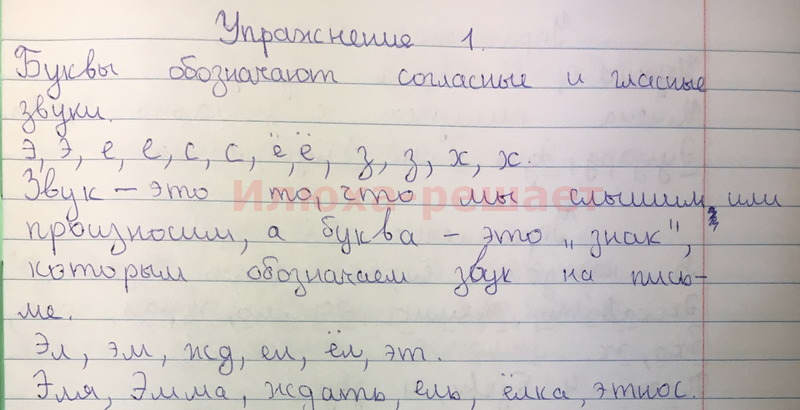 Упражнение 1.
Буквы обозначают согласные и гласные
звуки.
Э, э, е, е, с, с, ё, ё, з, з, х, х.
Звук – это то, что мы слышим или
Илюха-решает
произносим, а буква – это „знак",
которым обозначаем звук на пись-
ме.
Эл, эм, жд, ел, ёл, эт.
Эля, Эмма, ждать, ель, ёлка, этнос.